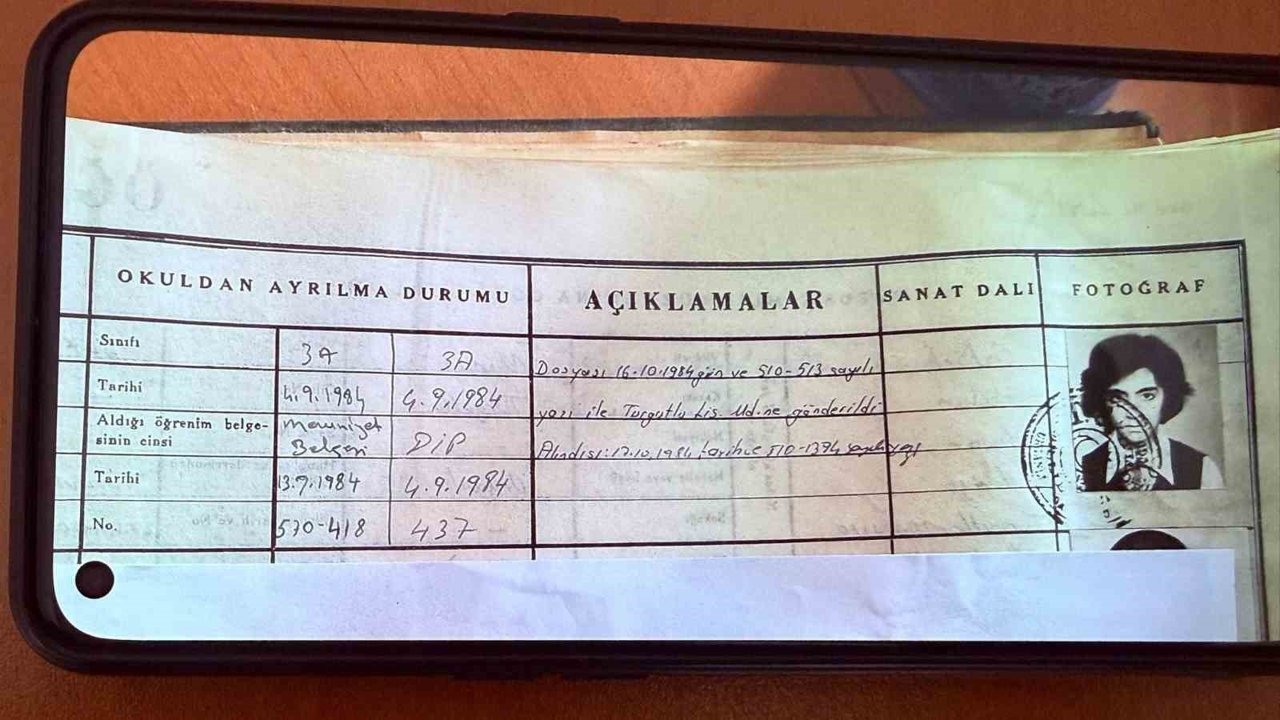 OKULDAN AYRILMA DURUMU AÇIKLAMALAR SANAT DALI FOTOĞRAF
Sınıfı 3A 3A Dosyası 16.10.1984 gün ve 510-513 sayılı
Tarihi 4.9.1984 4.9.1984 yazı ile Turgutlu Lis. Md.ne gönderildi
Aldığı öğrenim belge- Mezuniyet
sinin cinsi Belgesi DİP Alındısı: 17.10.1984 tarih ve 510-1374
Tarihi 13.9.1984 4.9.1984
No. 570-418 437